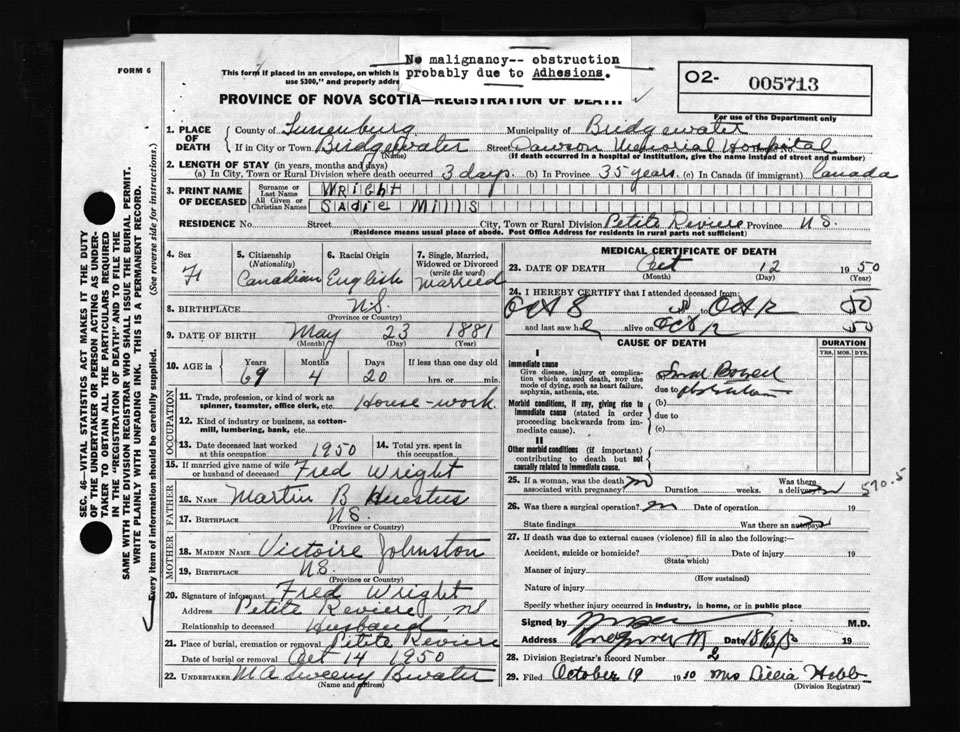 FORM 6
This form if placed in an envelope, on which is
use $300," and properly addre
No malignancy-- obstruction
probably due to Adhesions.
O2- 005713
For use of the Department only
PROVINCE OF NOVA SCOTIA—REGISTRATION OF DEATH
SEC. 46—VITAL STATISTICS ACT MAKES IT THE DUTY
OF THE UNDERTAKER OR PERSON ACTING AS UNDER-
TAKER TO OBTAIN ALL THE PARTICULARS REQUIRED
IN THE "REGISTRATION OF DEATH" AND TO FILE THE
SAME WITH THE DIVISION REGISTRAR WHO SHALL ISSUE THE BURIAL PERMIT.
WRITE PLAINLY WITH UNFADING INK. THIS IS A PERMANENT RECORD.
Every item of information should be carefully supplied. (See reverse side for instructions.)
1. PLACE OF DEATH County of Lunenburg Municipality of Bridgewater
If in City or Town Bridgewater (Name) Street Dawson Memorial Hospital No.
(If death occurred in a hospital or institution, give the name instead of street and number)
2. LENGTH OF STAY (in years, months and days)
(a) In City, Town or Rural Division where death occurred 3 days (b) In Province 35 years (c) In Canada (if immigrant) Canada
3. PRINT NAME OF DECEASED Surname or Last Name Wright
All Given or Christian Names Sadie Mills
RESIDENCE No. Street City, Town or Rural Division Petite Reviere Province N.S.
(Residence means usual place of abode. Post Office Address for residents in rural parts not sufficient)
4. Sex F
5. Citizenship (Nationality) Canadian
6. Racial Origin English
7. Single, Married, Widowed or Divorced (write the word) Married
8. BIRTHPLACE N.S.
(Province or Country)
9. DATE OF BIRTH May 23 1881
(Month) (Day) (Year)
10. AGE in Years 69 Months 4 Days 20 If less than one day old hrs. or min.
OCCUPATION
11. Trade, profession, or kind of work as spinner, teamster, office clerk, etc. House-work
12. Kind of industry or business, as cotton-mill, lumbering, bank, etc.
13. Date deceased last worked at this occupation 1950
14. Total yrs. spent in this occupation
15. If married give name of wife or husband of deceased Fred Wright
FATHER
16. NAME Martin B Huestis
17. BIRTHPLACE N.S.
(Province or Country)
MOTHER
18. MAIDEN NAME Victoire Johnston
19. BIRTHPLACE N.S.
(Province or Country)
20. Signature of informant Fred Wright
Address Petite Reviere, NS
Relationship to deceased Husband
21. Place of burial, cremation or removal Petite Reviere
Date of burial or removal Oct 14 1950
22. UNDERTAKER M A Sweeny Bwater
(Name and address)
MEDICAL CERTIFICATE OF DEATH
23. DATE OF DEATH Oct 12 1950
(Month) (Day)
24. I HEREBY CERTIFY that I attended deceased from:
Oct 8 to Oct 12 50
and last saw h alive on Oct 12 50
CAUSE OF DEATH
DURATION
YRS. MOS. DYS.
I
Immediate cause
Give disease, injury or complication which caused death, NOT the mode of dying, such as heart failure, asphyxia, asthenia, etc.
Small Bowell
due to obstruction
Morbid conditions, if any, giving rise to immediate cause (stated in order proceeding backwards from immediate cause).
(b)
due to
(c)
II
Other morbid conditions (if important) contributing to death but not causally related to immediate cause.
25. If a woman, was the death associated with pregnancy? no Duration weeks. Was there a delivery no
570.5
26. Was there a surgical operation? no Date of operation 19
State findings Was there an autopsy? no
27. If death was due to external causes (violence) fill in also the following:—
Accident, suicide or homicide? Date of injury 19
(State which)
Manner of injury
(How sustained)
Nature of injury
Specify whether injury occurred in industry, in home, or in public place
Signed by M.D.
Address Date 19
28. Division Registrar's Record Number 2
29. Filed October 19 1950 Mrs Lillia Hebb
(Division Registrar)